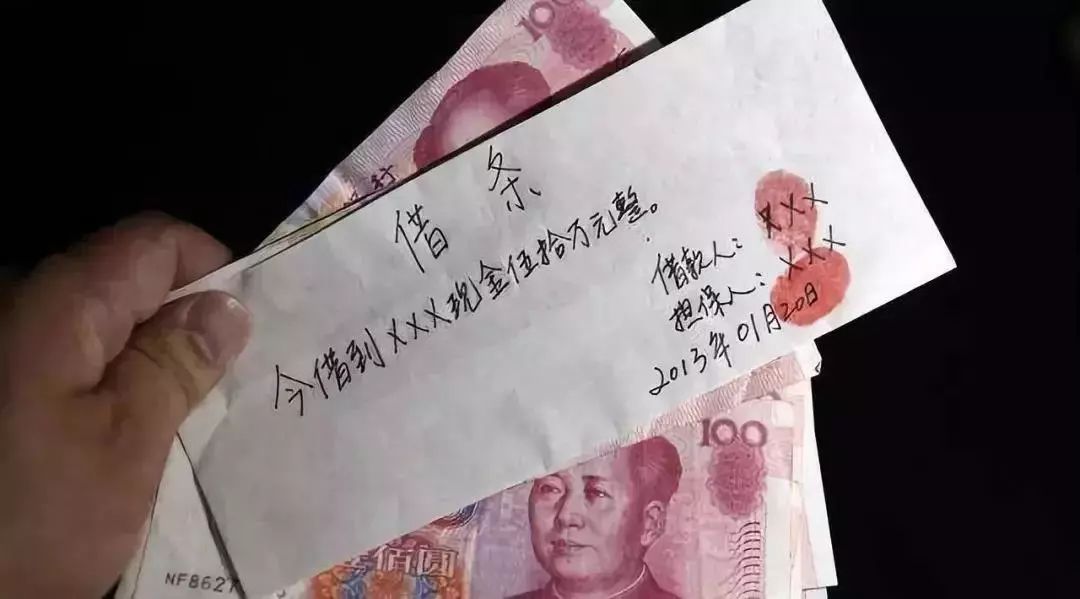 100
借条
今借到XXX现金伍拾万元整。
借款人：XXX
担保人：XXX
2013年01月20日
100
佰圆
NF8627